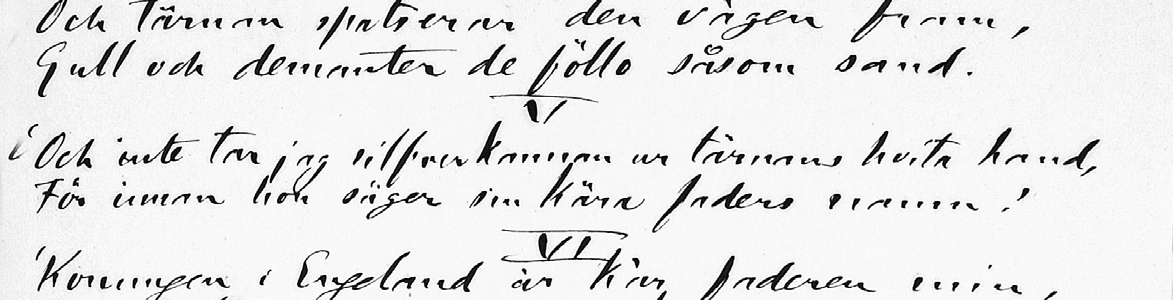 Och tärnan spatserar den vägen fram,
Gull och demanter de föllo såsom sand.
V
Och inte tar jag silfverkannan ur tärnans hvita hand,
För innan hon säger sin kära faders namn!
VI
'Konungen i Engeland är kär faderen min,